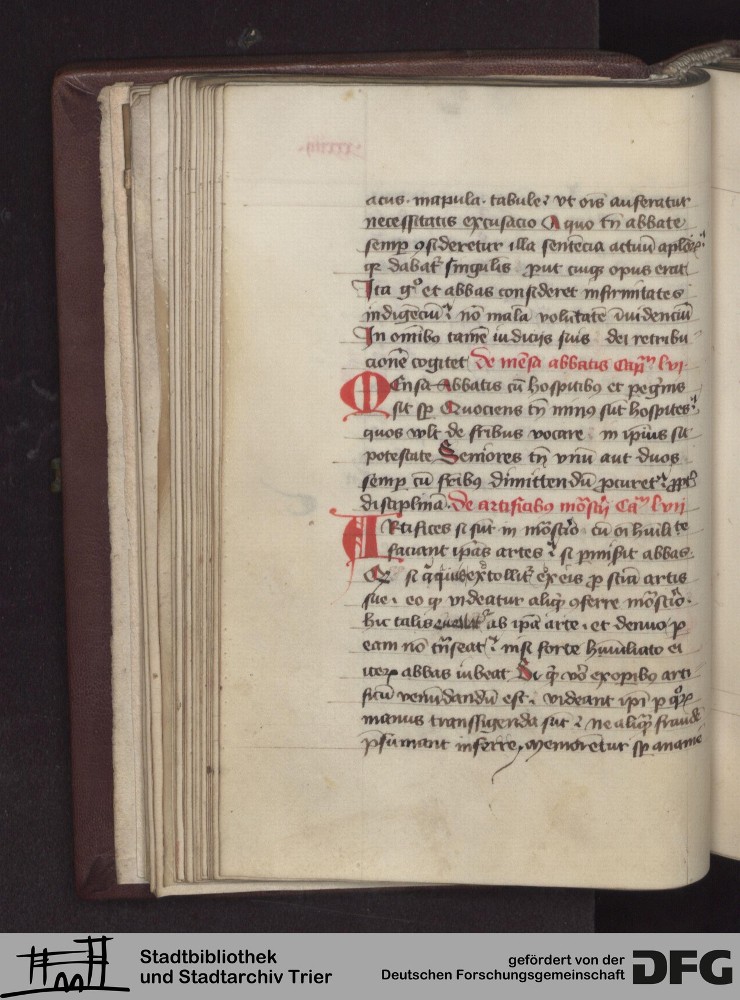 acus. mapula. tabule. ut ois auferatur
necessitatis excusacio A quo tn abbate
semp ꝯsideretur illa sentencia actuu aplorꝝ
qꝛ dabat singulis put cuiqꝫ opus erat
Ita gͦ et abbas consideret infirmitates
indigenciu. no mala volutate inuidenciu
In omibꝫ tame iudicijs suis dei retribu
cione cogitet De mesa abbatis Capm lvi
MEnsa Abbatis cu hospitibꝫ et pegnis
sit sp Quociens tn minꝯ sut hospites.
quos vlt de fribus vocare in ipius sit
potestate Seniores tn vnu aut duos
semp cu fribꝫ dimittendu pcuret. ppt
disciplina. De artificibꝫ mostij Cam lvij
ARtifices si sut in mostio cu oi huilite
faciant ipas artes. si pmisit abbas.
si extollit ex eis p scia artis
sue. eo qꝫ videatur aliqꝫ ꝯferre mostio.
hic talis ab ipa arte. et denuo p
eam no tnseat. nisi forte humiliato ei
iteꝝ abbas iubeat Si qͥ vo ex opibꝫ arti
ficu venudandu est. videant ipi p qͦꝝ
manus transsigenda sut. ne aliqꝫ fraude
psumant inferre, Memorentur sp ananie
Stadtbibliothek
und Stadtarchiv Trier
gefördert von der
Deutschen Forschungsgemeinschaft
DFG